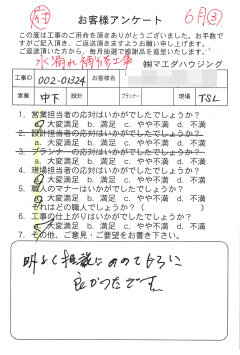 お客様アンケート
6月③
この度は工事のご用命を頂きありがとうございました。お手数で
すがご記入頂き、ご返送頂きますようお願い申し上げます。
ご返送いただいた方から、毎月抽選で感謝品を進呈いたします。
水漏れ補修工事
㈱マエダハウジング
工事ID 002-01324 お客様名
営業 中下 設計 プランナー 現場 TSL
1. 営業担当者の応対はいかがでしたでしょうか?
a. 大変満足 b. 満足 c. やや不満 d. 不満
2. 設計担当者の応対はいかがでしたでしょうか?
a. 大変満足 b. 満足 c. やや不満 d. 不満
3. プランナーの応対はいかがでしたでしょうか?
a. 大変満足 b. 満足 c. やや不満 d. 不満
4. 現場担当者の応対はいかがでしたでしょうか?
a. 大変満足 b. 満足 c. やや不満 d. 不満
5. 職人のマナーはいかがでしたでしょうか?
a. 大変満足 b. 満足 c. やや不満 d. 不満
それはどの職人でしょうか?( )
6. 工事の仕上がりはいかがでしたでしょうか?
a. 大変満足 b. 満足 c. やや不満 d. 不満
7. その他、ご意見・ご要望をお書き下さい。
良かったです。